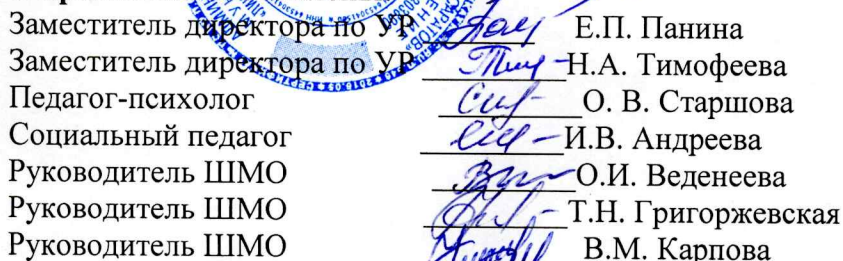 Заместитель директора по УР Е.П. Панина
Заместитель директора по УР Н.А. Тимофеева
Педагог-психолог О. В. Старшова
Социальный педагог И.В. Андреева
Руководитель ШМО О.И. Веденеева
Руководитель ШМО Т.Н. Григоржевская
Руководитель ШМО В.М. Карпова